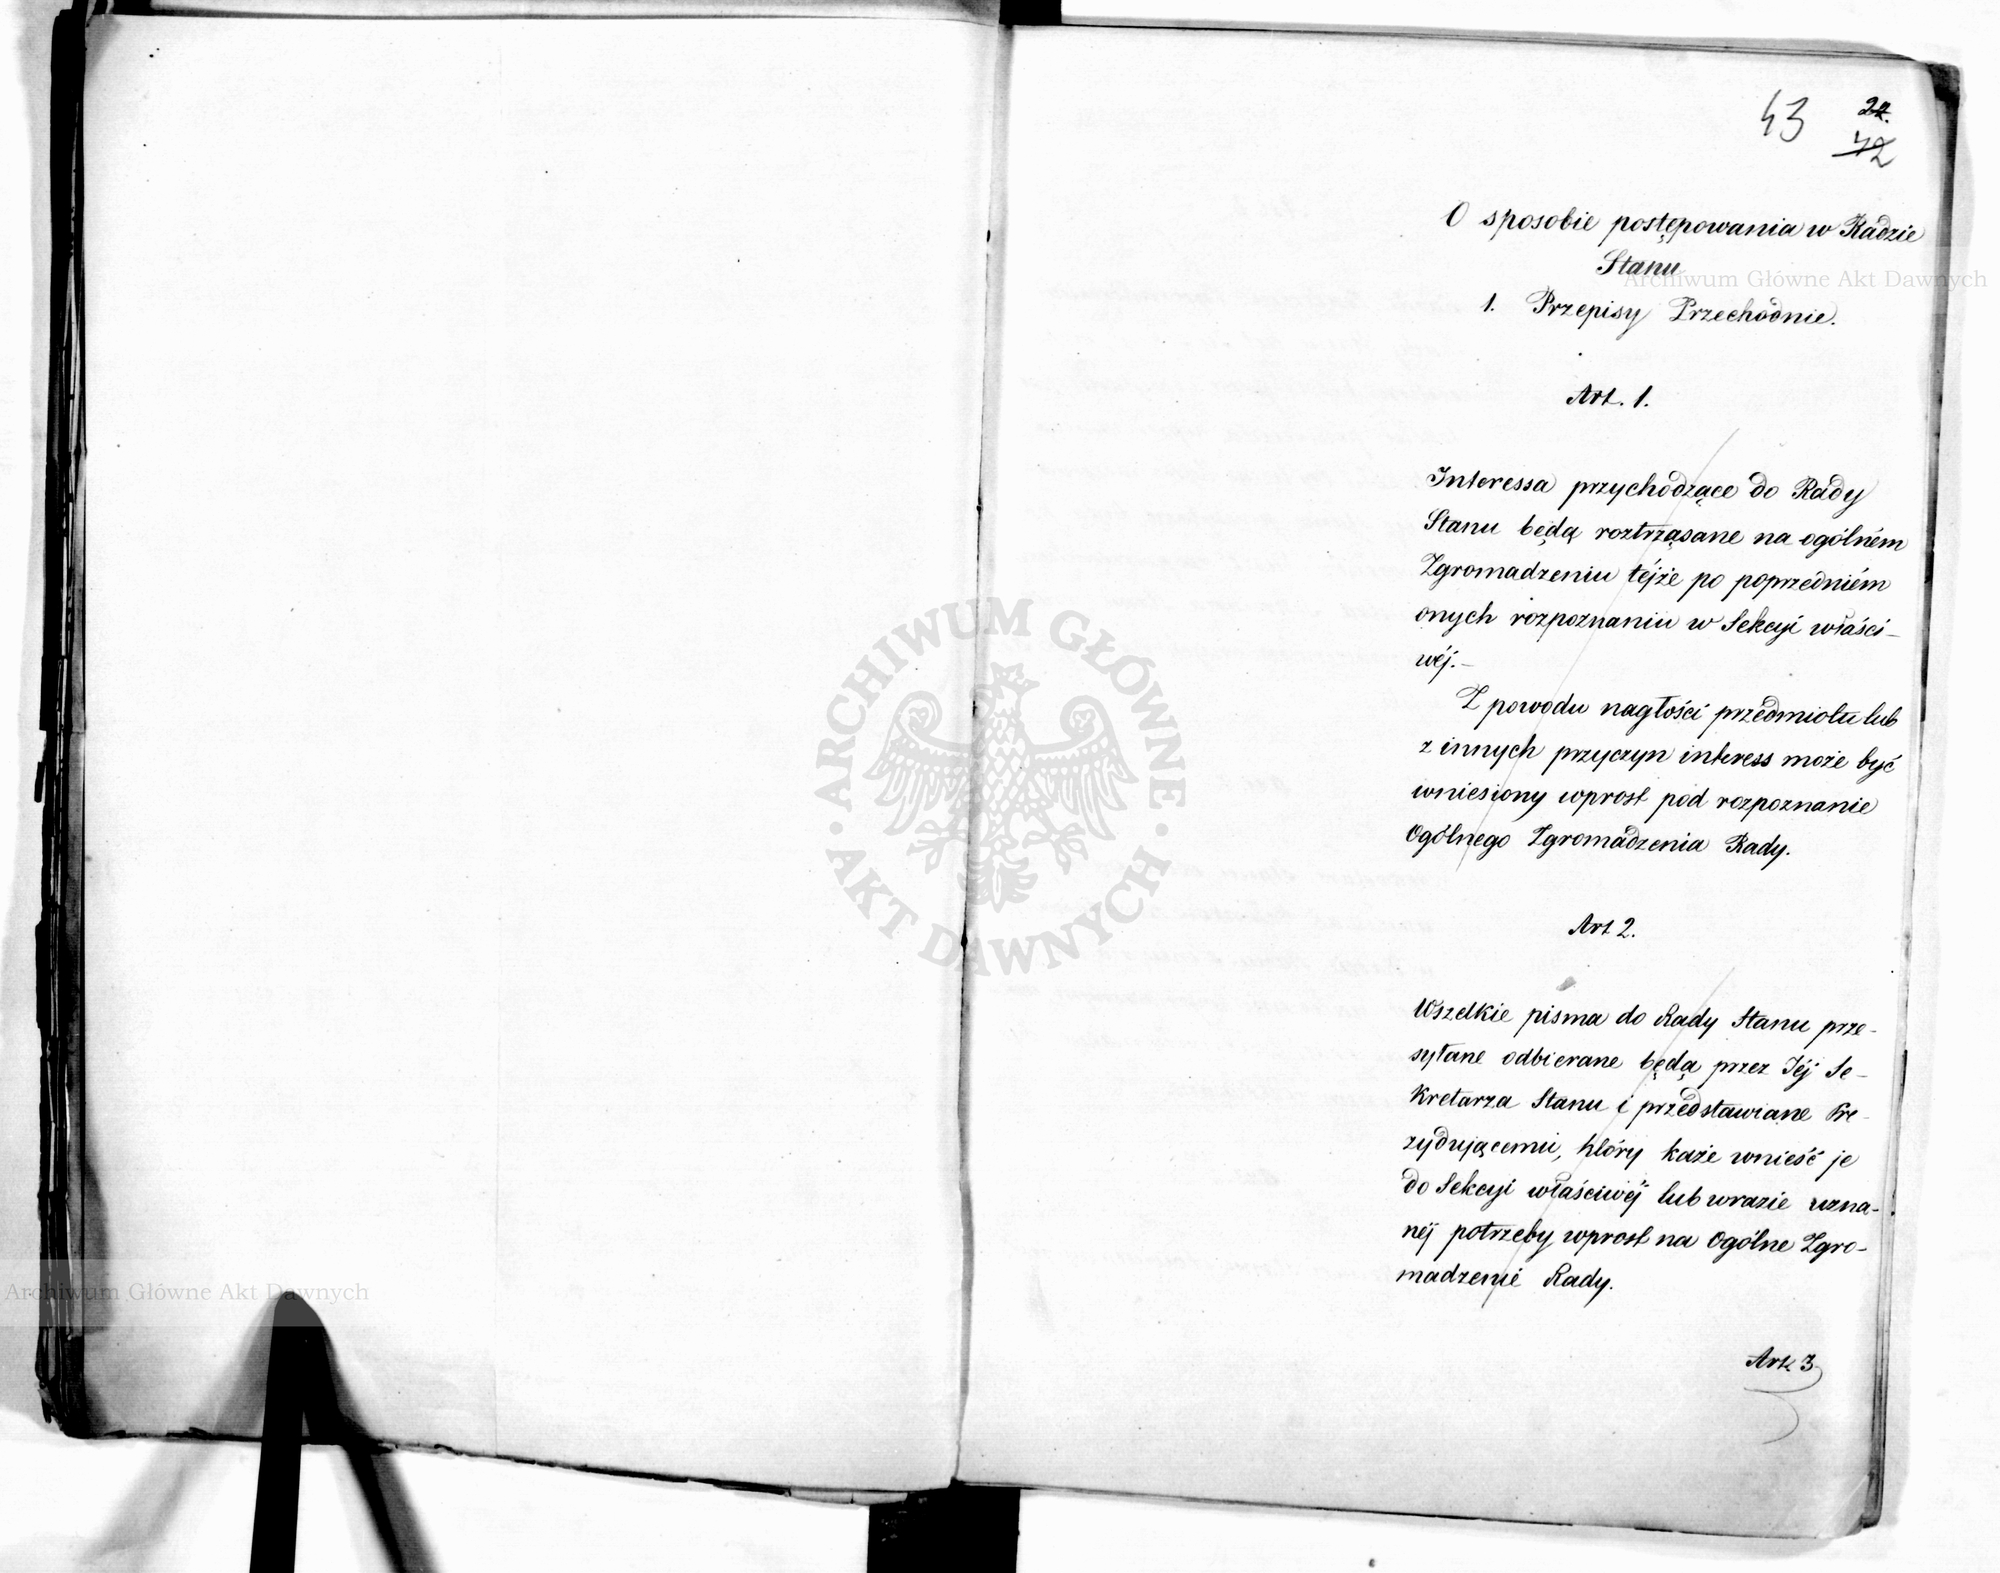 43
24.
42
O sposobie postępowania w Radzie
Stanu
1. Przepisy Przechodnie.
Art. 1.
Interessa przychodzące do Rady
Stanu będą roztrząsane na ogólném
Zgromadzeniu téjże po poprzedniém
onych rozpoznaniu w Sekcyi właści-
wéj.-
Z powodu nagłości przedmiotu lub
z innych przyczyn interess może być
wniesiony wprost pod rozpoznanie
Ogólnego Zgromadzenia Rady.
Art 2.
Wszelkie pisma do Rady Stanu prze-
syłane odbierane będą przez Jéj Se-
kretarza Stanu i przedstawiane Pre-
zydującemu, który każe wnieść je
do Sekcyi właściwéj lub w razie uzna-
néj potrzeby wprost na Ogólne Zgro-
madzenie Rady.
Art. 3
Archiwum Główne Akt Dawnych
ARCHIWUM GŁÓWNE
AKT DAWNYCH
Archiwum Główne Akt Dawnych